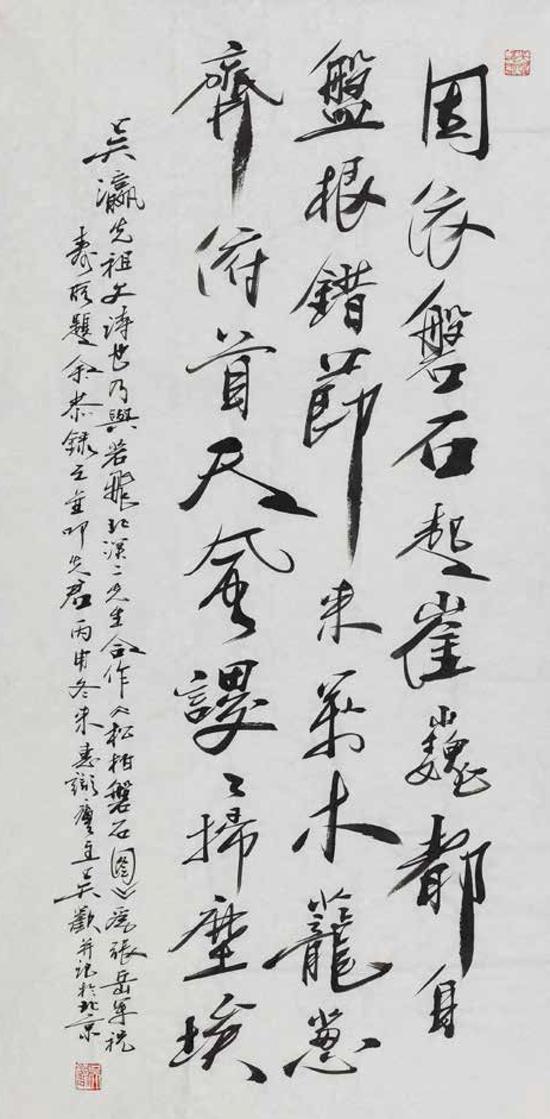 固依磐石起崔巍都自
盤根錯節来萬木蘢葱
齊俯首天風謖〻掃塵埃
吴瀛先祖父詩也乃與若飛北溟二先生合作《松柏磐石圖》為張岳軍祝
壽所題余恭録之並叩先君丙申冬廬主吴歡并記於北京